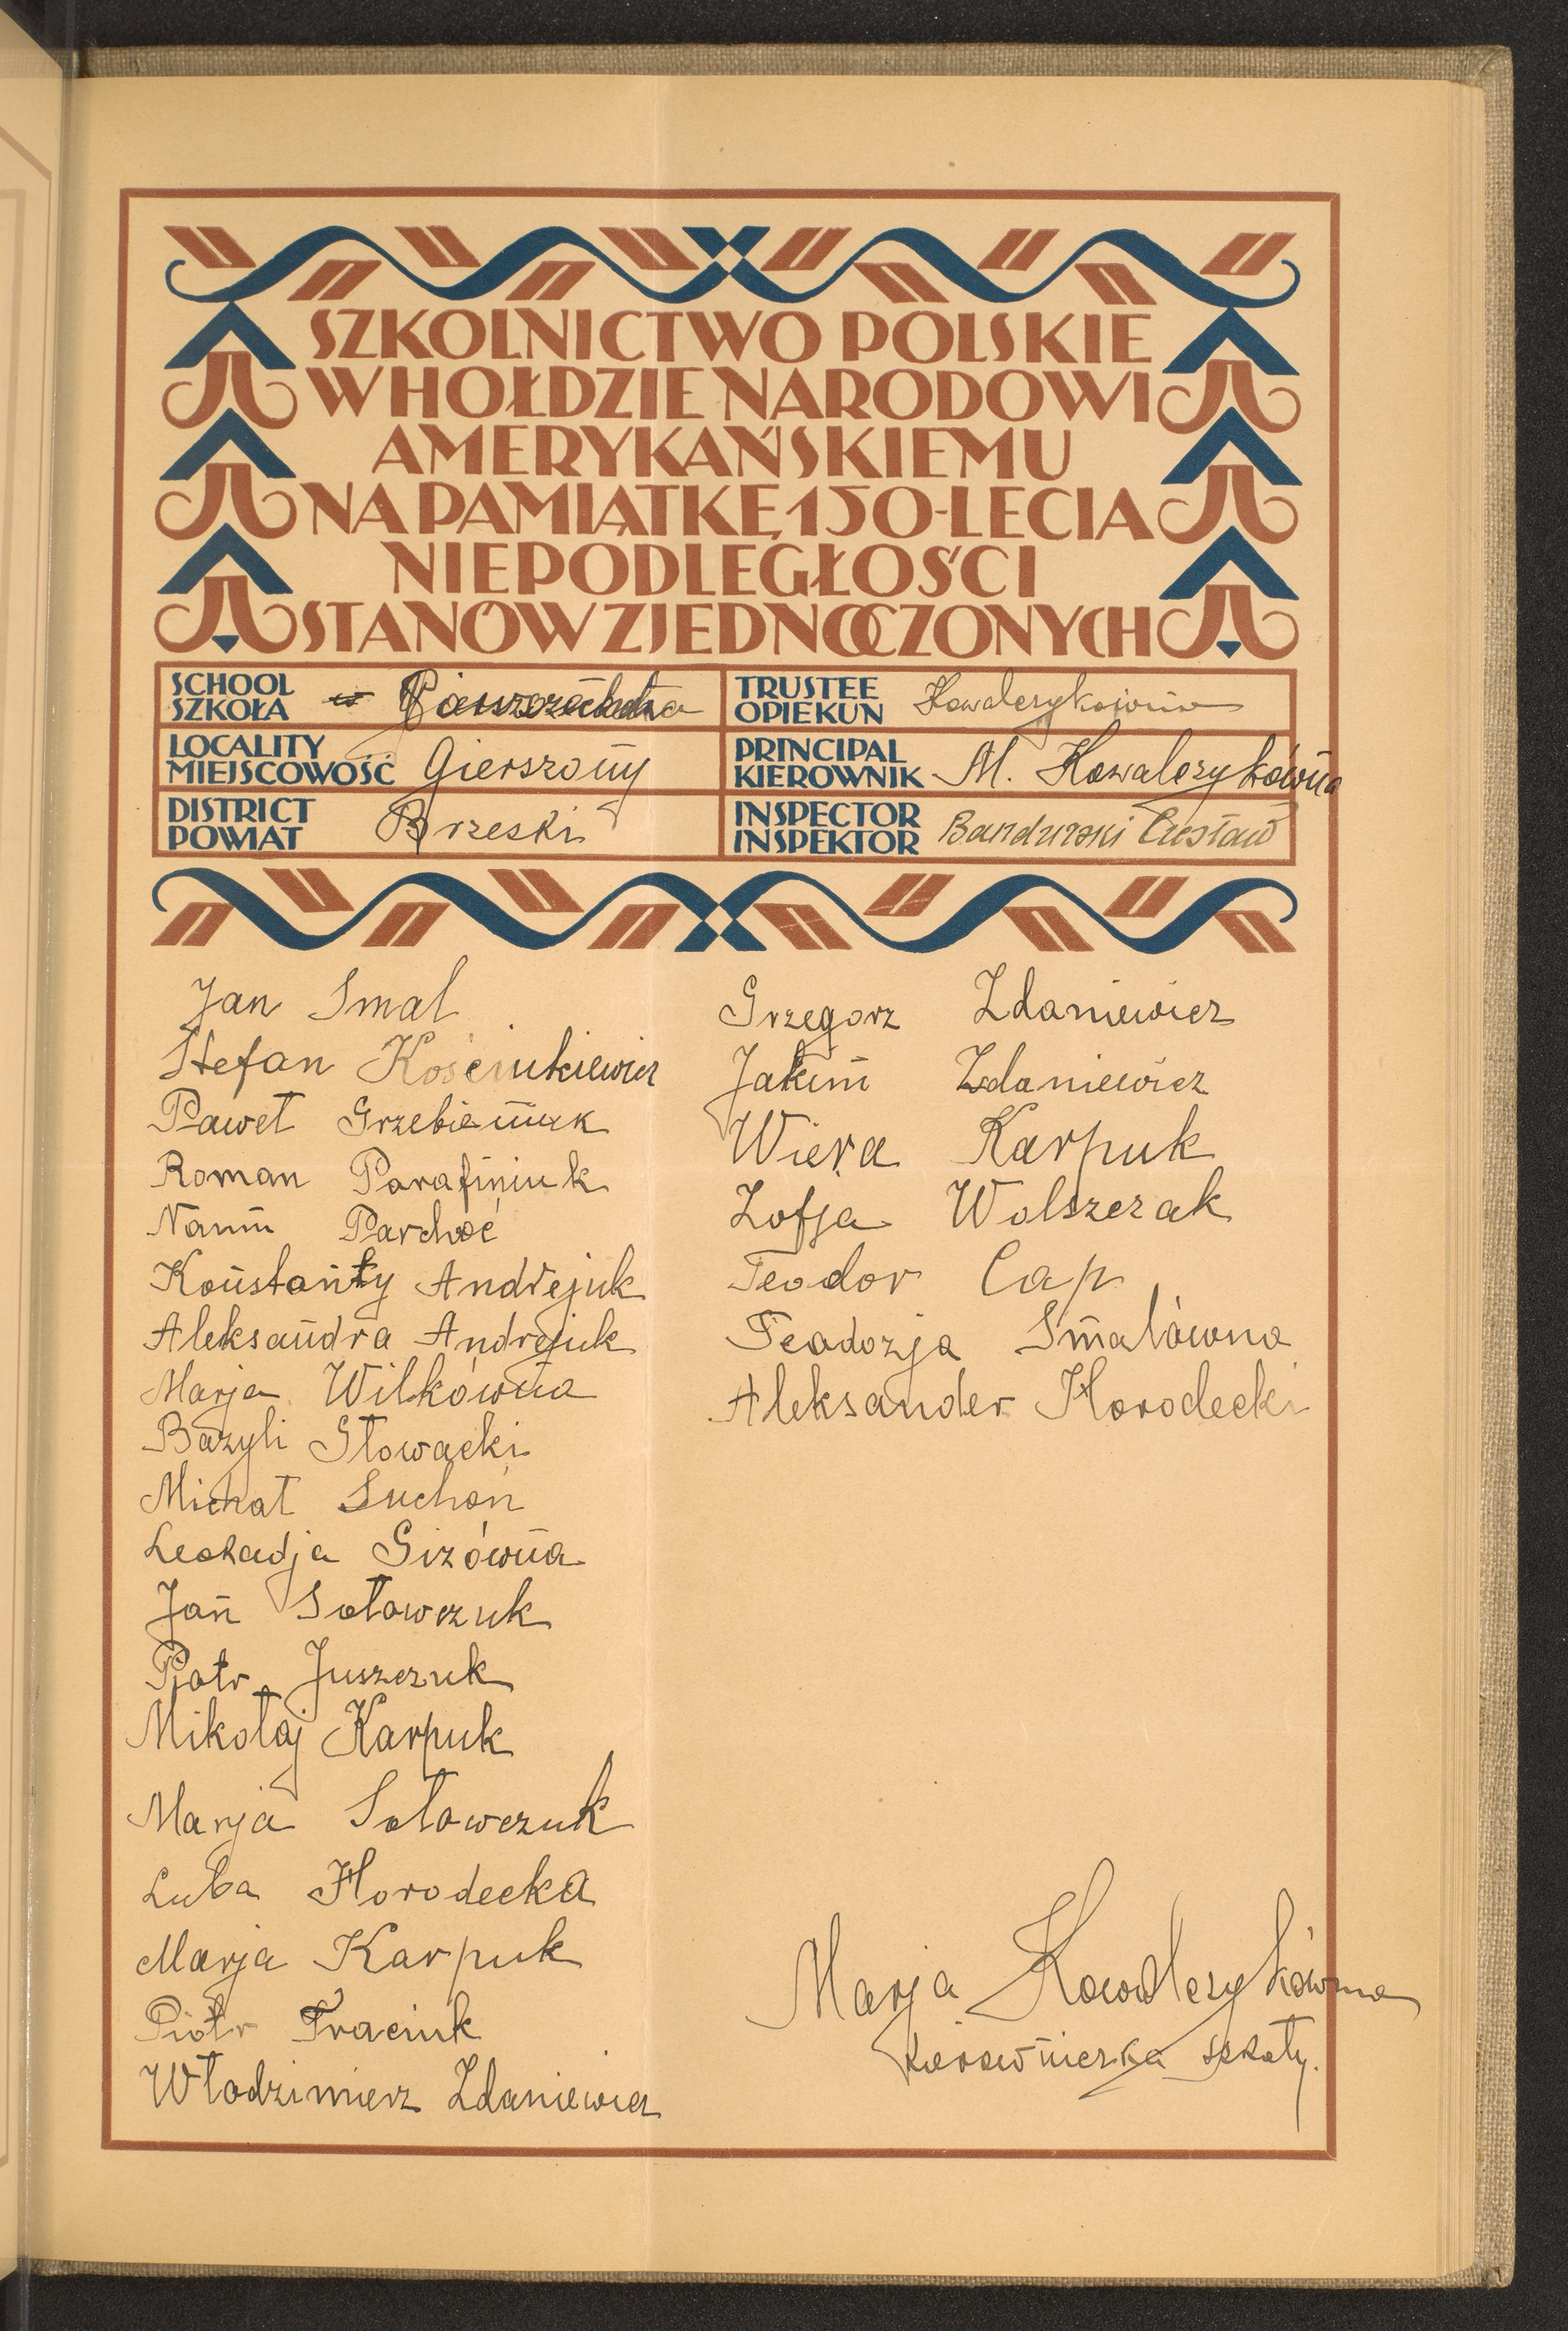 SZKOLNICTWO POLSKIE
W HOŁDZIE NARODOWI
AMERYKAŃSKIEMU
NA PAMIĄTKĘ 150-LECIA
NIEPODLEGŁOŚCI
STANÓW ZJEDNOCZONYCH
SCHOOL
SZKOŁA Powszechna
TRUSTEE
OPIEKUN Kowalczykówna
LOCALITY
MIEJSCOWOŚĆ Gierszony
PRINCIPAL
KIEROWNIK M. Kowalczykówna
DISTRICT
POWIAT Brzeski
INSPECTOR
INSPEKTOR Bandurski Czesław
Jan Smal
Stefan Kościukiewicz
Paweł
Roman Parafiniuk
Naum
Konstanty Andrejuk
Aleksandra Andrejuk
Marja Wilkówna
Bazyli Słowacki
Michał Suchoń
Leokadja Gizówna
Jan Sołowczuk
Piotr Juszczuk
Mikołaj Karpuk
Marja Sołowczuk
Luba Horodecka
Marja Karpuk
Piotr Traciuk
Włodzimierz Zdaniewicz
Grzegorz Zdaniewicz
Jakim Zdaniewicz
Wiera Karpuk
Zofja Wolszczak
Teodor Cap
Teodozja Smalówna
Aleksander Horodecki
Marja Kowalczykówna
kierowniczka szkoły.